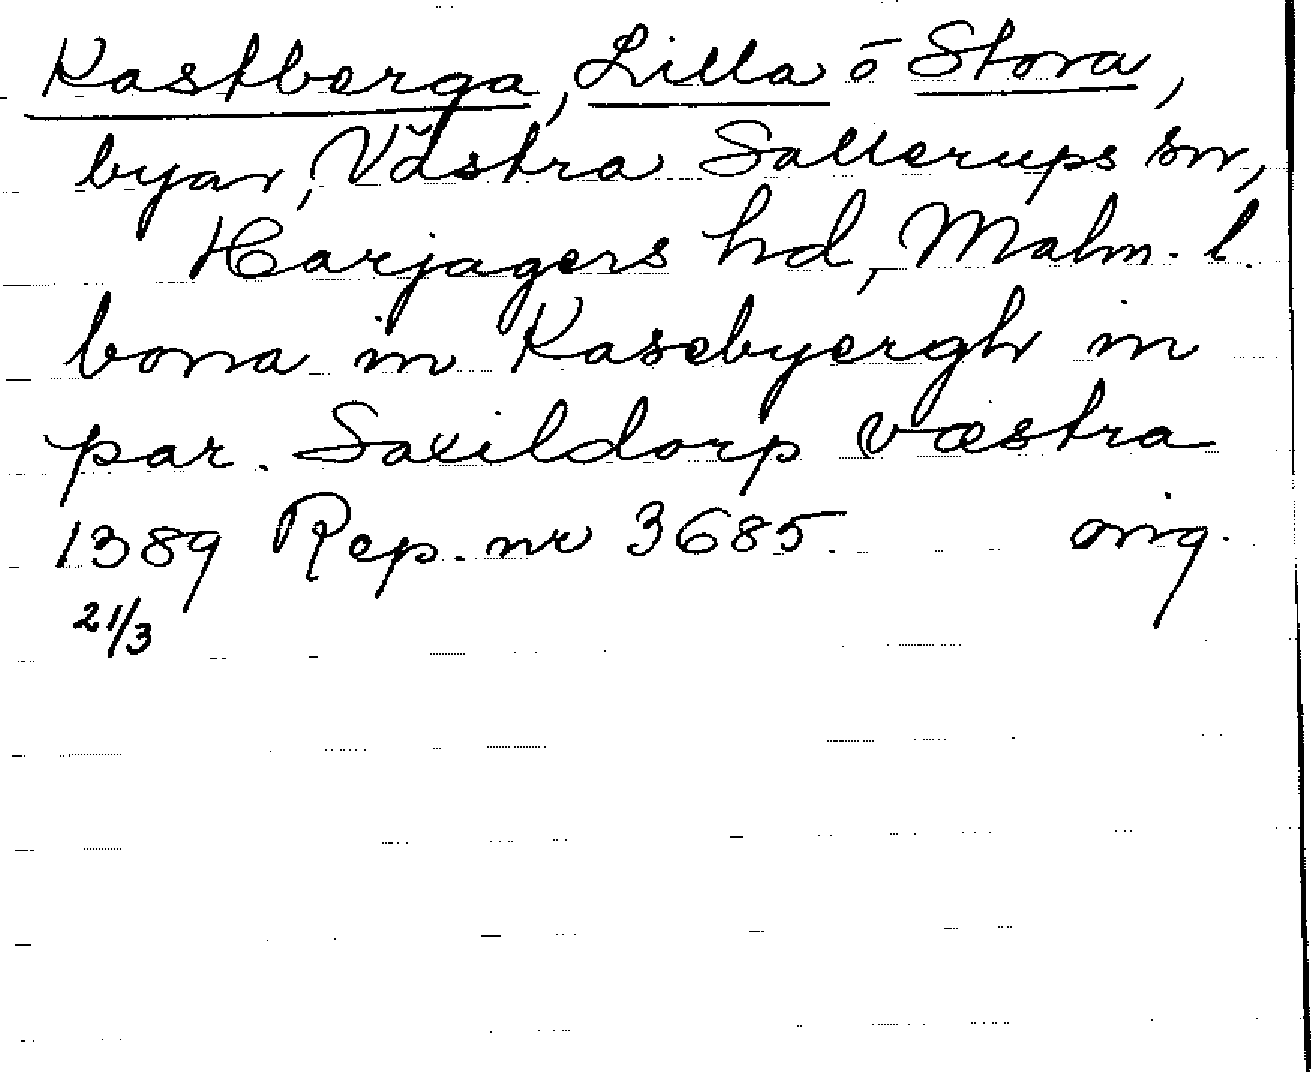 Kastberga, Lilla o Stora,
byar, Västra Sallerups sn,
Harjagers hd, Malm. l.
bona in Kasebyergh in
par. Saxildorp væstra
1389 Rep. nr 3685. orig.
21/3